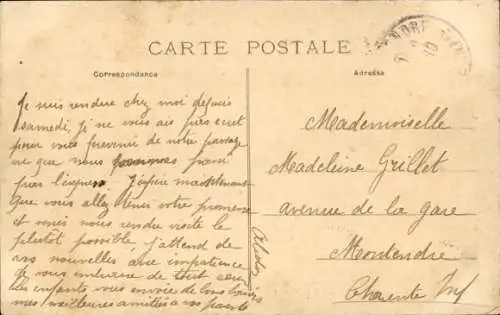 CARTE POSTALE
Correspondance
Adresse
Je suis rendue chez moi depuis
samedi, je ne vous ais pas ecrit
pour vous prevenir de notre passage
ne que nous passé
pres l'express J'espère maintenant
que vous allez tenir votre promesse
et venir nous rendre visite le
plutot possible, j'attend de
vos nouvelles avec impatience
Je vous embrasse de tout coeur
Les enfants vous envoie de bons baisers
mes meilleures amitiés a vos parents
Mademoiselle
Madeleine Grillet
avenue de la gare
Montendre
Charente Inf